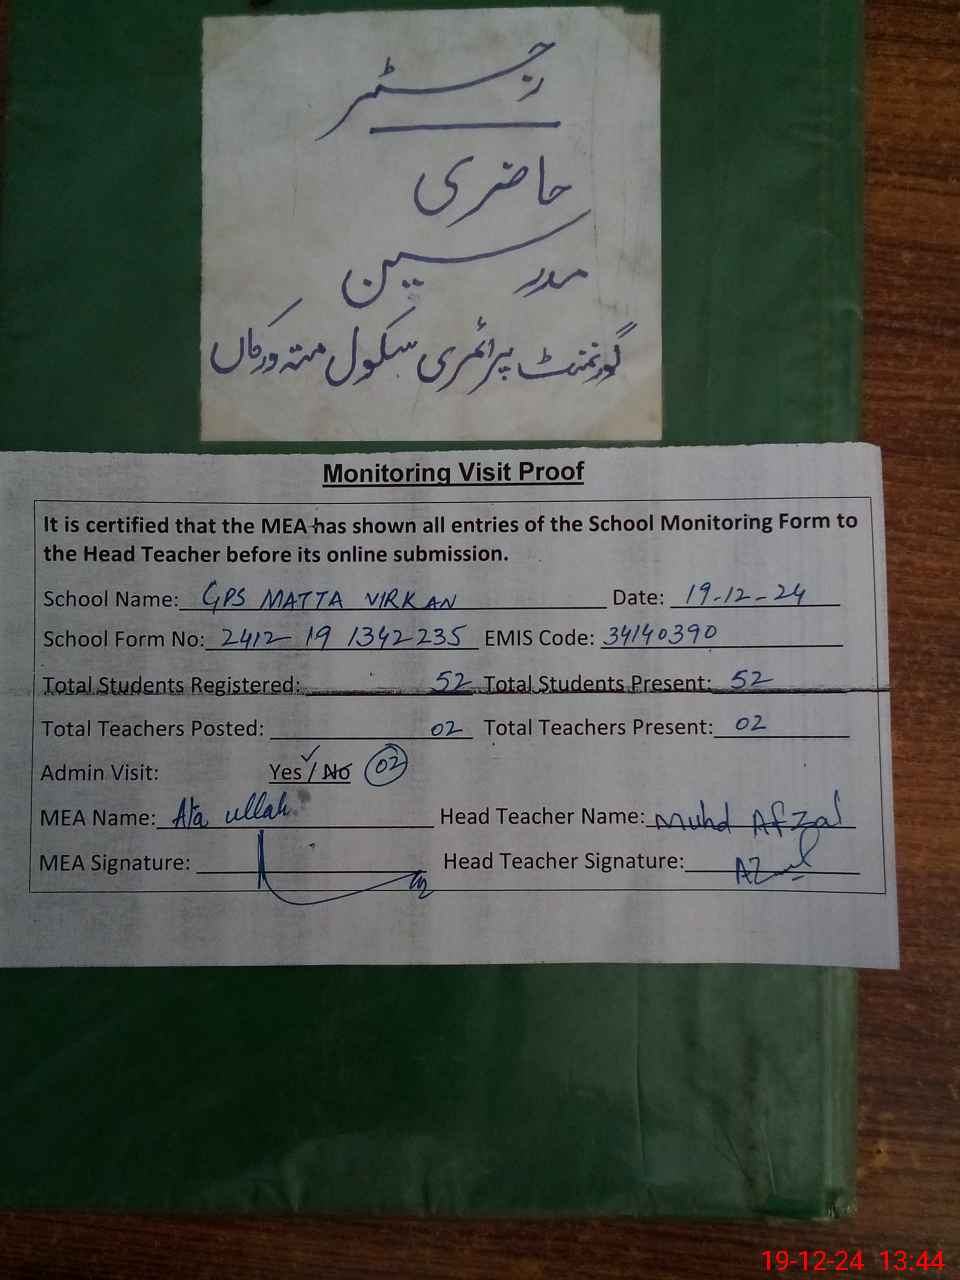 رجسٹر
حاضری
مدرسین
گورنمنٹ پرائمری سکول متہ ورکاں
Monitoring Visit Proof
It is certified that the MEA has shown all entries of the School Monitoring Form to
the Head Teacher before its online submission.
School Name: GPS MATTA VIRKAN Date: 19-12-24
School Form No: 2412-19 1342235 EMIS Code: 34140390
Total Students Registered: 52 Total Students Present: 52
Total Teachers Posted: 02 Total Teachers Present: 02
Admin Visit: Yes / No 02
MEA Name: Ata ullah Head Teacher Name: Muhd Afzal
MEA Signature: Head Teacher Signature:
19-12-24 13:44